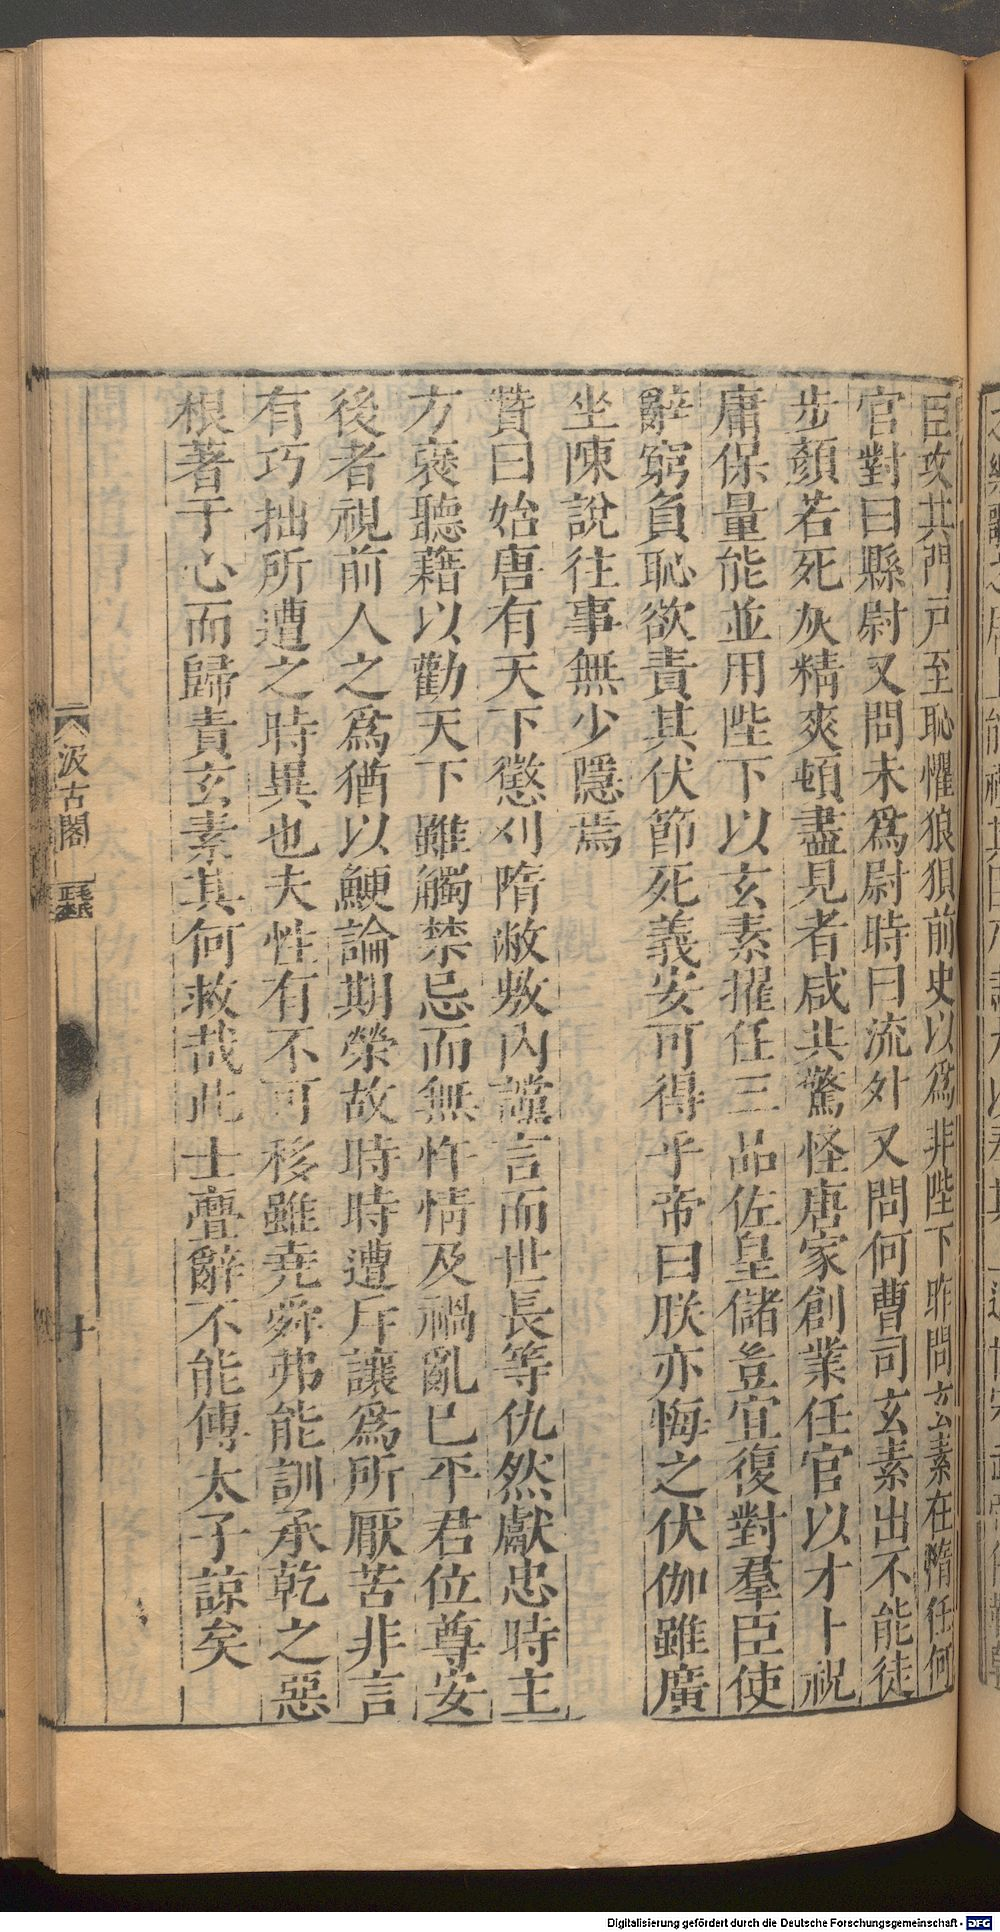 臣攻其門戸至恥懼狼狽前史以爲非陛下昨問玄素在隋任何
官對曰縣尉又問未爲尉時曰流外又問何曹司玄素出不能徒
步顏若死灰精爽頓盡見者咸共驚怪唐家創業任官以才卜祝
庸保量能並用陛下以玄素擢任三品佐皇儲豈宜復對羣臣使
辭窮負恥欲責其伏節死義安可得乎帝曰朕亦悔之伏伽雖廣
坐陳說往事無少隱焉
贊曰始唐有天下懲刈隋敝敷內讜言而世長等仇然獻忠時主
方裦聽藉以勸天下雖觸禁忌而無忤情及禍亂已平君位尊安
後者視前人之爲猶以鯁論期榮故時時遭斥讓爲所厭苦非言
有巧拙所遭之時異也夫性有不可移雖堯舜弗能訓承乾之惡
根著于心而歸責玄素其何救哉此士亹辭不能傅太子諒矣
汲古閣
十
Digitalisierung gefördert durch die Deutsche Forschungsgemeinschaft - DFG